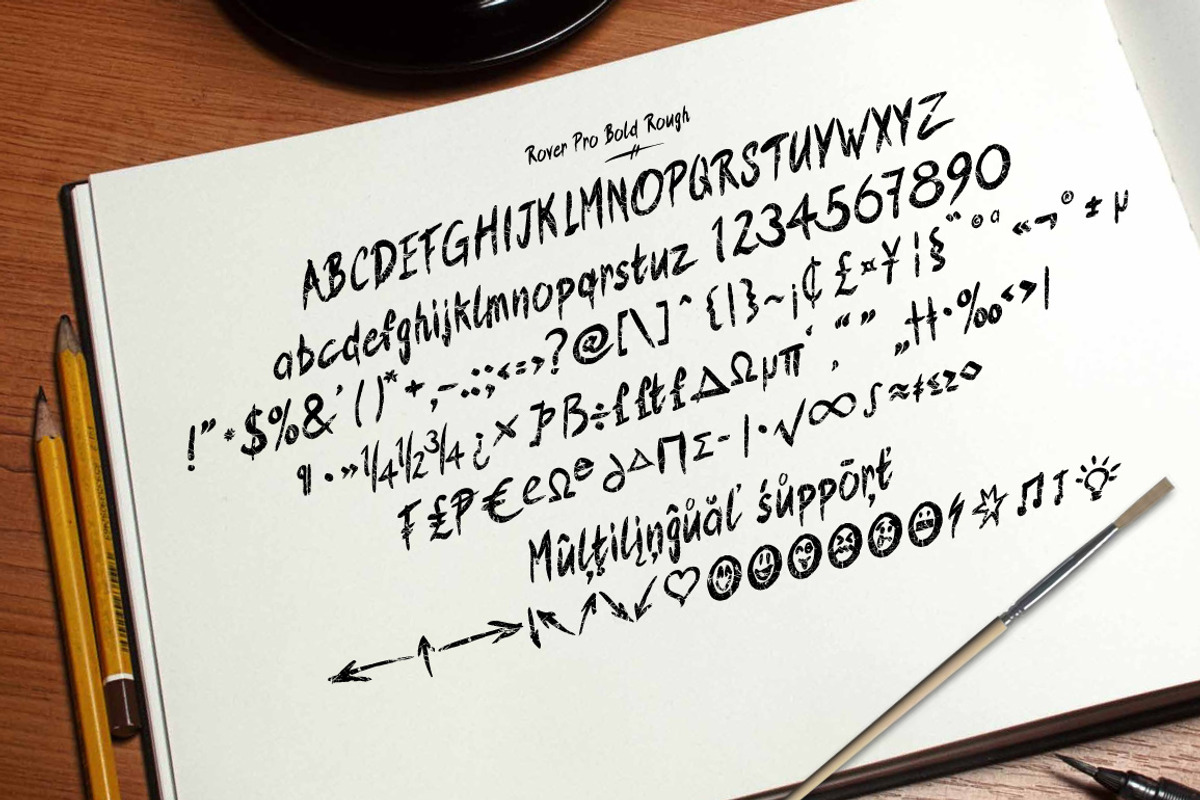 Rover Pro Bold Rough
ABCDEFGHIJKLMNOPQRSTUVWXYZ
abcdefghijklmnopqrstuz 1234567890
!"*$%&'()*+,-.:;<=>?@[\]^{|}~¡¢£¤¥¦§¨©ª«¬®±µ
¶·»¼½¾¿×ÞB÷
Mûļţilįņĝůăľ śůppōŗť